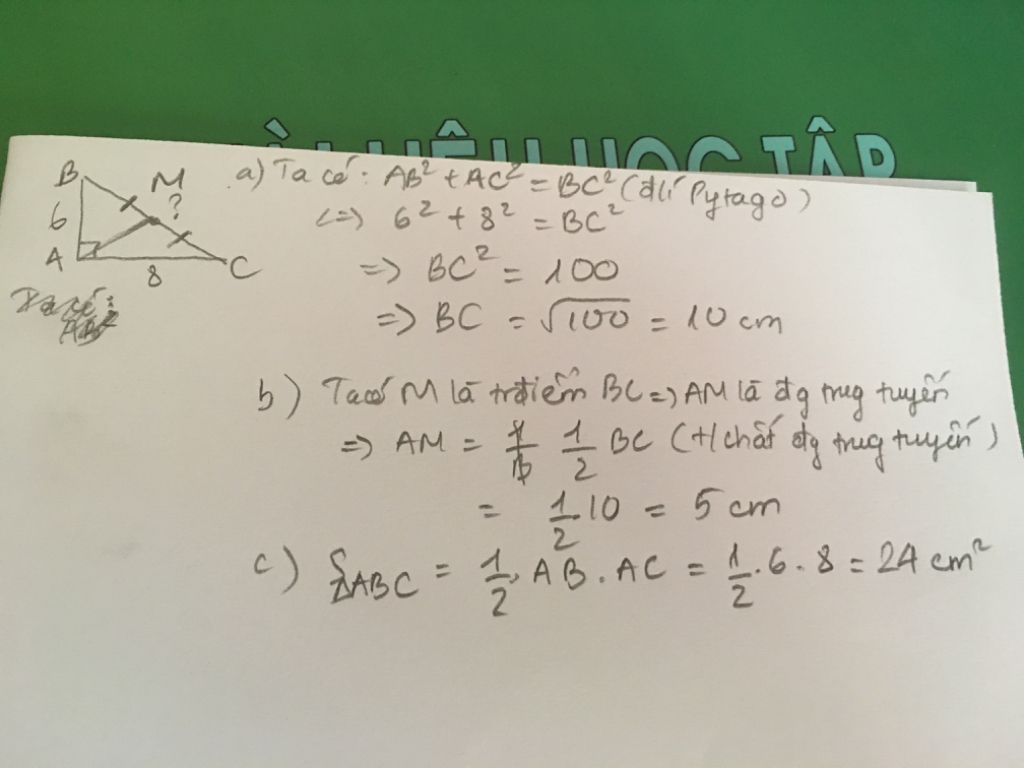 TÀI LIỆU HỌC TẬP
B
M
6
?
A
8
C
Ta có:
AB²
a) Ta có: AB² + AC² = BC² (đlí Pytago)
<=> 6² + 8² = BC²
=> BC² = 100
=> BC = √100 = 10 cm
b) Ta có M là trđiểm BC => AM là đg trug tuyến
=> AM = 1/2 BC (t/chất đg trug tuyến)
= 1/2.10 = 5 cm
c) SΔABC = 1/2.AB.AC = 1/2.6.8 = 24 cm²